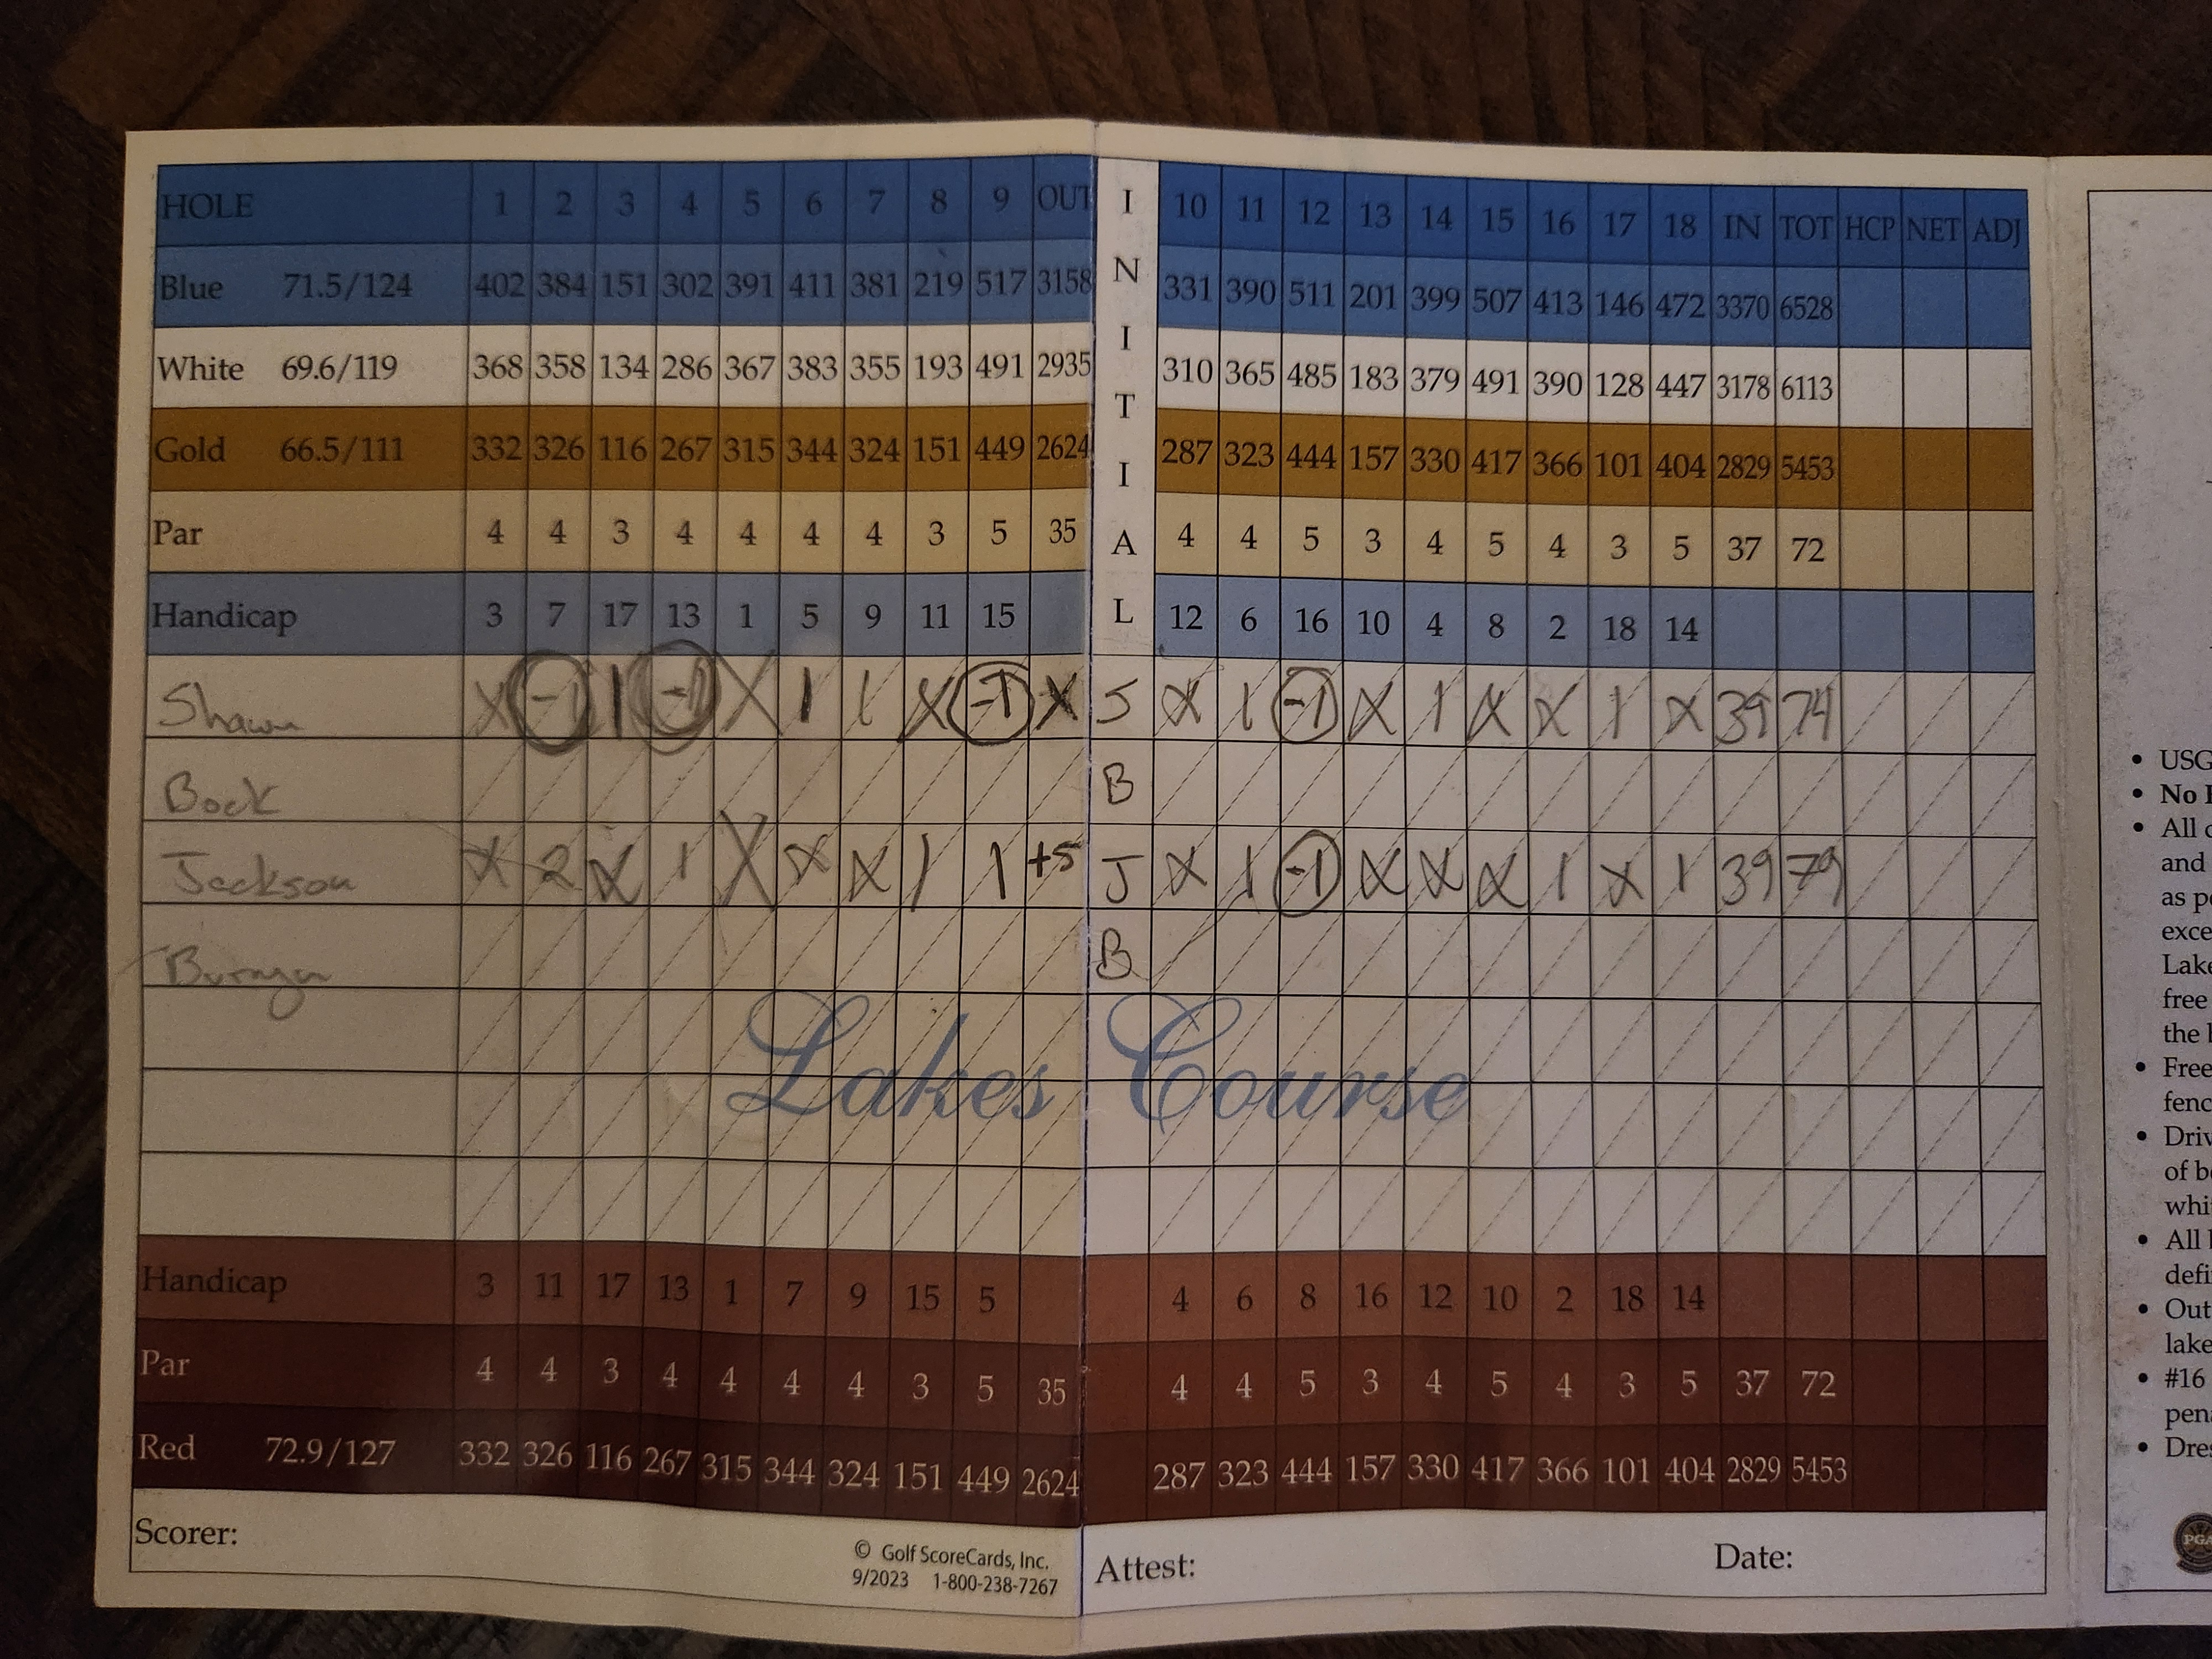 HOLE 1 2 3 4 5 6 7 8 9 OUT INITIAL 10 11 12 13 14 15 16 17 18 IN TOT HCP NET ADJ
Blue 71.5/124 402 384 151 302 391 411 381 219 517 3158 331 390 511 201 399 507 413 146 472 3370 6528
White 69.6/119 368 358 134 286 367 383 355 193 491 2935 310 365 485 183 379 491 390 128 447 3178 6113
Gold 66.5/111 332 326 116 267 315 344 324 151 449 2624 287 323 444 157 330 417 366 101 404 2829 5453
Par 4 4 3 4 4 4 4 3 5 35 4 4 5 3 4 5 4 3 5 37 72
Handicap 3 7 17 13 1 5 9 11 15 12 6 16 10 4 8 2 18 14
Shawn X -1 1 -1 X 1 1 X -1 X S X 1 -1 X 1 X X 1 X 39 74
Bock B
Jackson X 2 X 1 X X X 1 1 +5 J X 1 -1 X X X 1 X 1 39 79
B
Lakes Course
Handicap 3 11 17 13 1 7 9 15 5 4 6 8 16 12 10 2 18 14
Par 4 4 3 4 4 4 4 3 5 35 4 4 5 3 4 5 4 3 5 37 72
Red 72.9/127 332 326 116 267 315 344 324 151 449 2624 287 323 444 157 330 417 366 101 404 2829 5453
Scorer:
© Golf ScoreCards, Inc.
9/2023 1-800-238-7267
Attest: Date:
• USG
• No
• All
and
as
exce
Lake
free
the
• Free
fenc
• Driv
of
whi
• All
defi
• Out
lake
• #16
pen
• Dres
PGA